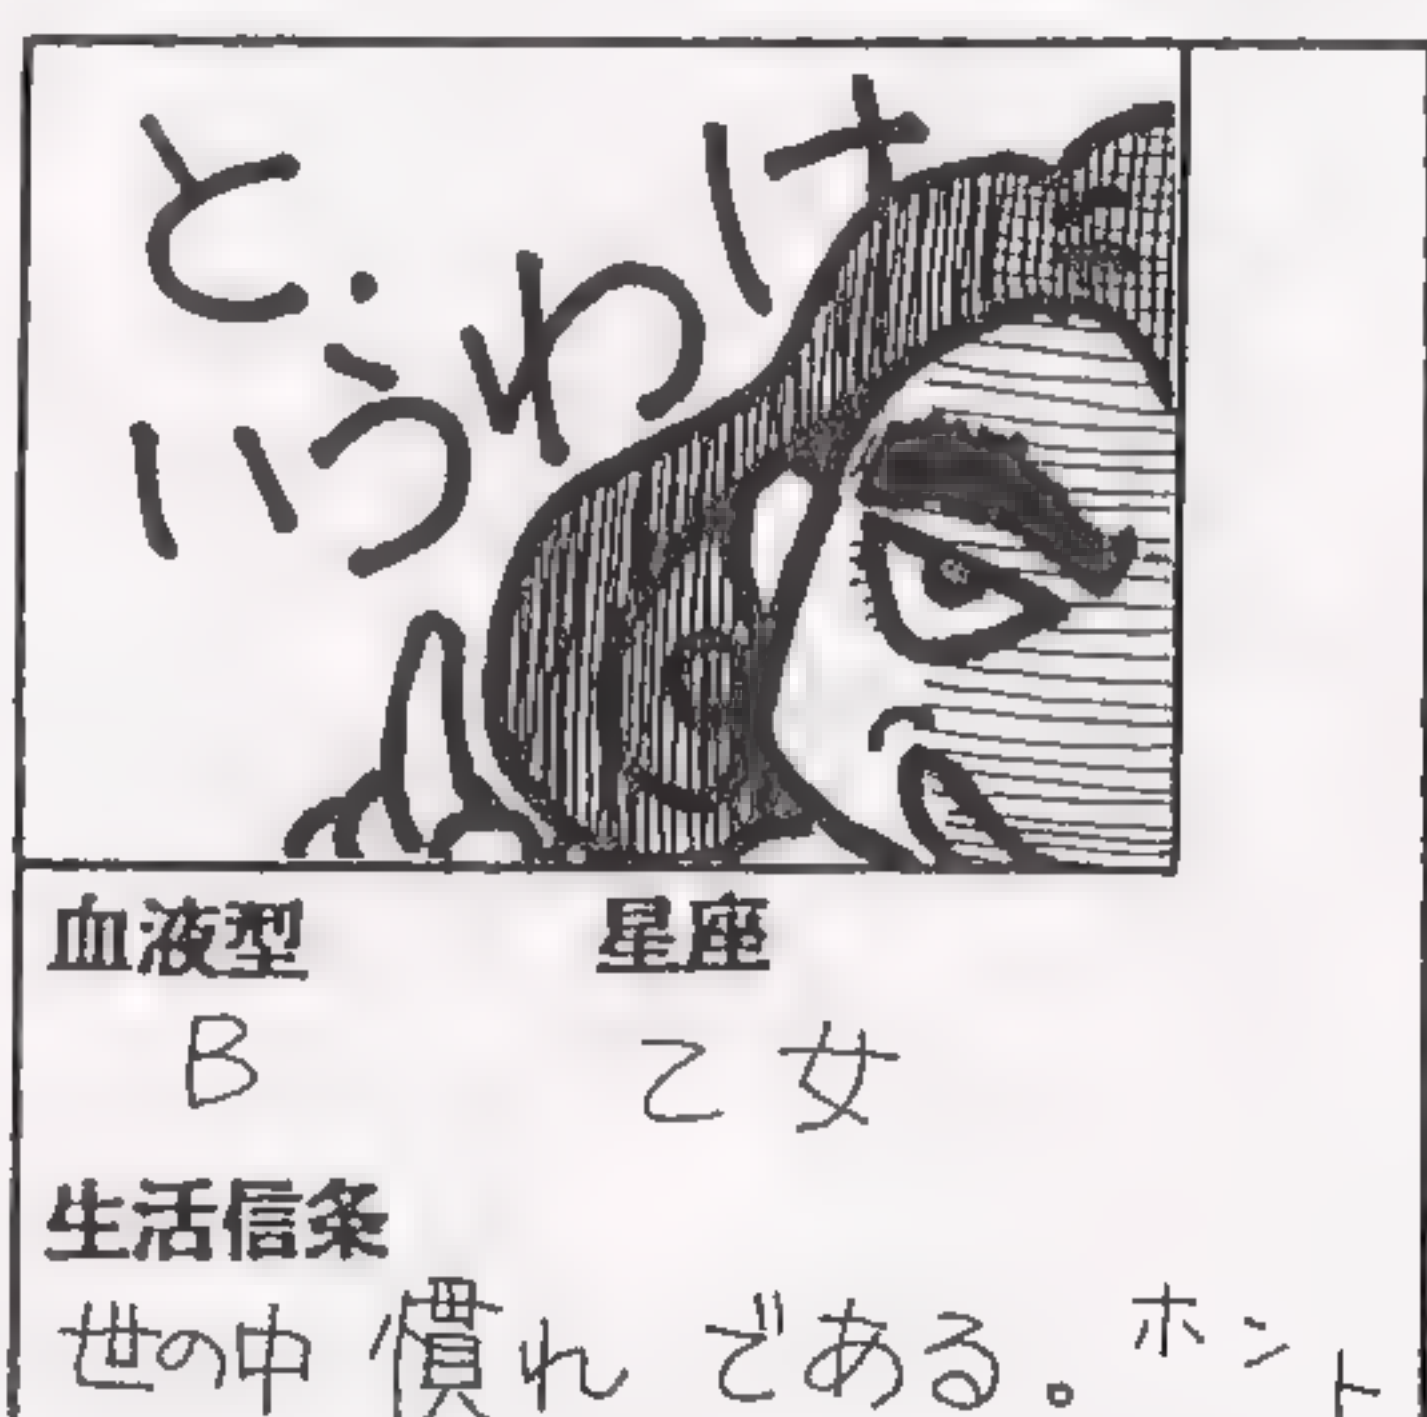 と.
いうわけ
血液型 星座
B 乙女
生活信条
世の中慣れである。ホント